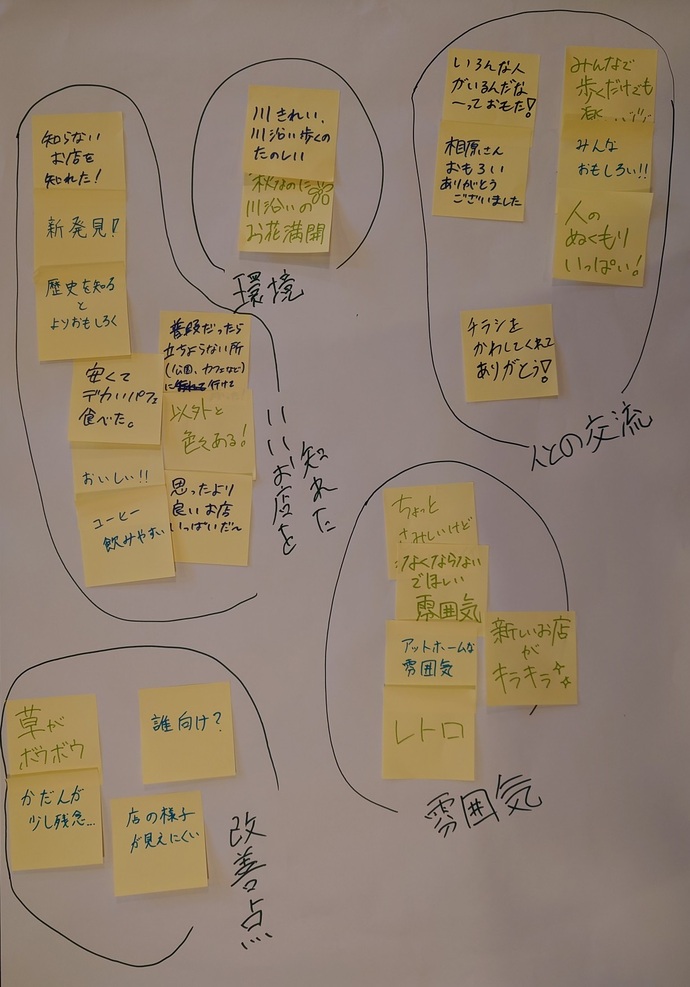 知らない
お店を
知れた!
新発見!
歴史を知る
と
よりおもしろく
安くて
デカいパフェ
食べた。
おいしい!!
コーヒー
飲みやすい
普段だったら
立ちよらない所
(公園、カフェなど)
に
行けた
以外と
色々ある!
思ったより
良いお店
いっぱいだん
いいお店を
知れた
川きれい、
川沿い歩くの
たのしい
秋なのに
川沿いの
お花満開
環境
いろんな人
がいるんだな
〜っておもた!
相原さん
おもろい
ありがとう
ございました
みんなで
歩くだけでも
みんな
おもしろい!!
人の
ぬくもり
いっぱい!
チラシを
かわしてくれて
ありがとう!
人との交流
ちょっと
さみしいけど
なくならない
でほしい
雰囲気
アットホームな
雰囲気
レトロ
新しいお店
が
キラキラ
雰囲気
草が
ボウボウ
かだんが
少し残念...
誰向け?
店の様子
が見えにくい
改善点